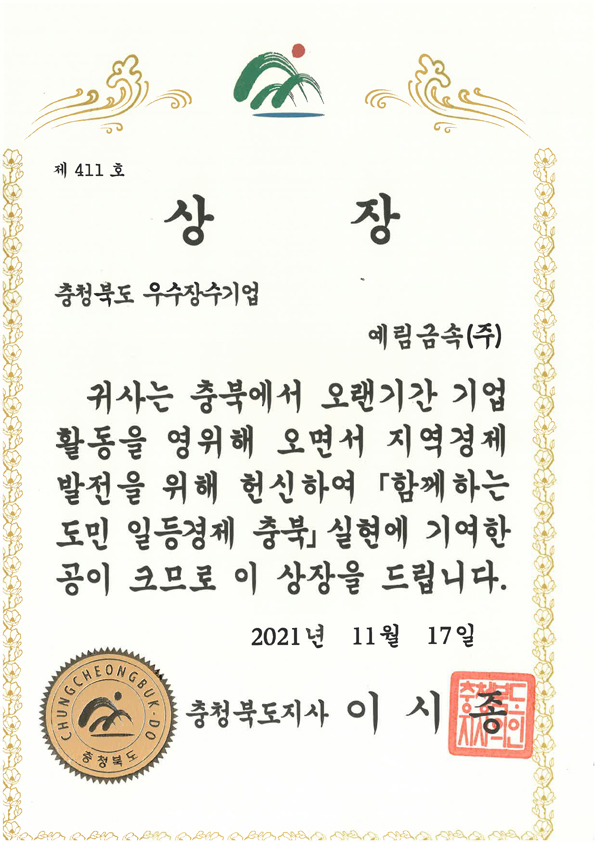 제 411 호
상 장
충청북도 우수장수기업
예림금속(주)
귀사는 충북에서 오랜기간 기업
활동을 영위해 오면서 지역경제
발전을 위해 헌신하여 「함께하는
도민 일등경제 충북」 실현에 기여한
공이 크므로 이 상장을 드립니다.
2021년 11월 17일
충청북도지사 이 시 종
CHUNGCHEONGBUK-DO
충청북도
충청북도
지사의인